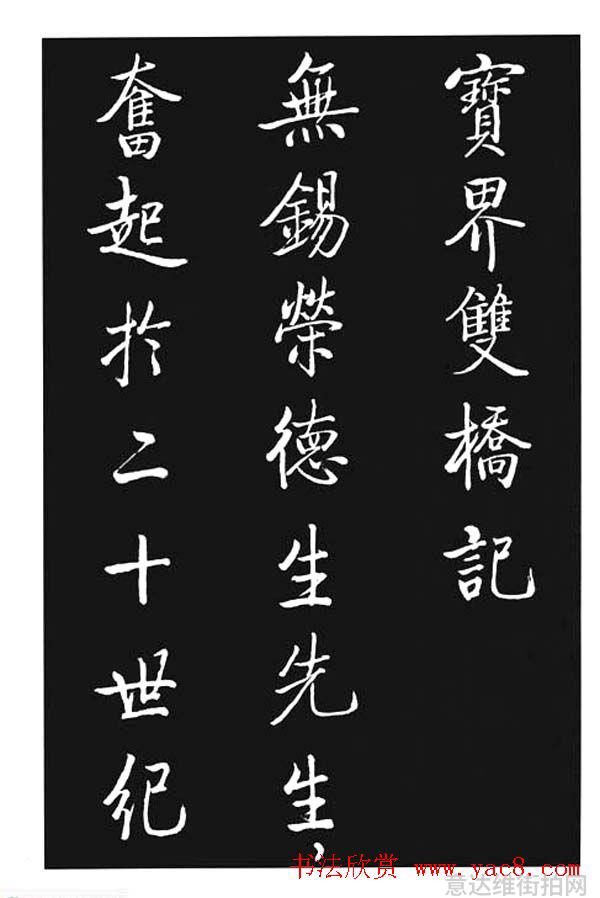 寶界雙橋記
無錫榮德生先生，
奮起於二十世紀
书法欣赏 www.yac8.com
意达维街拍网